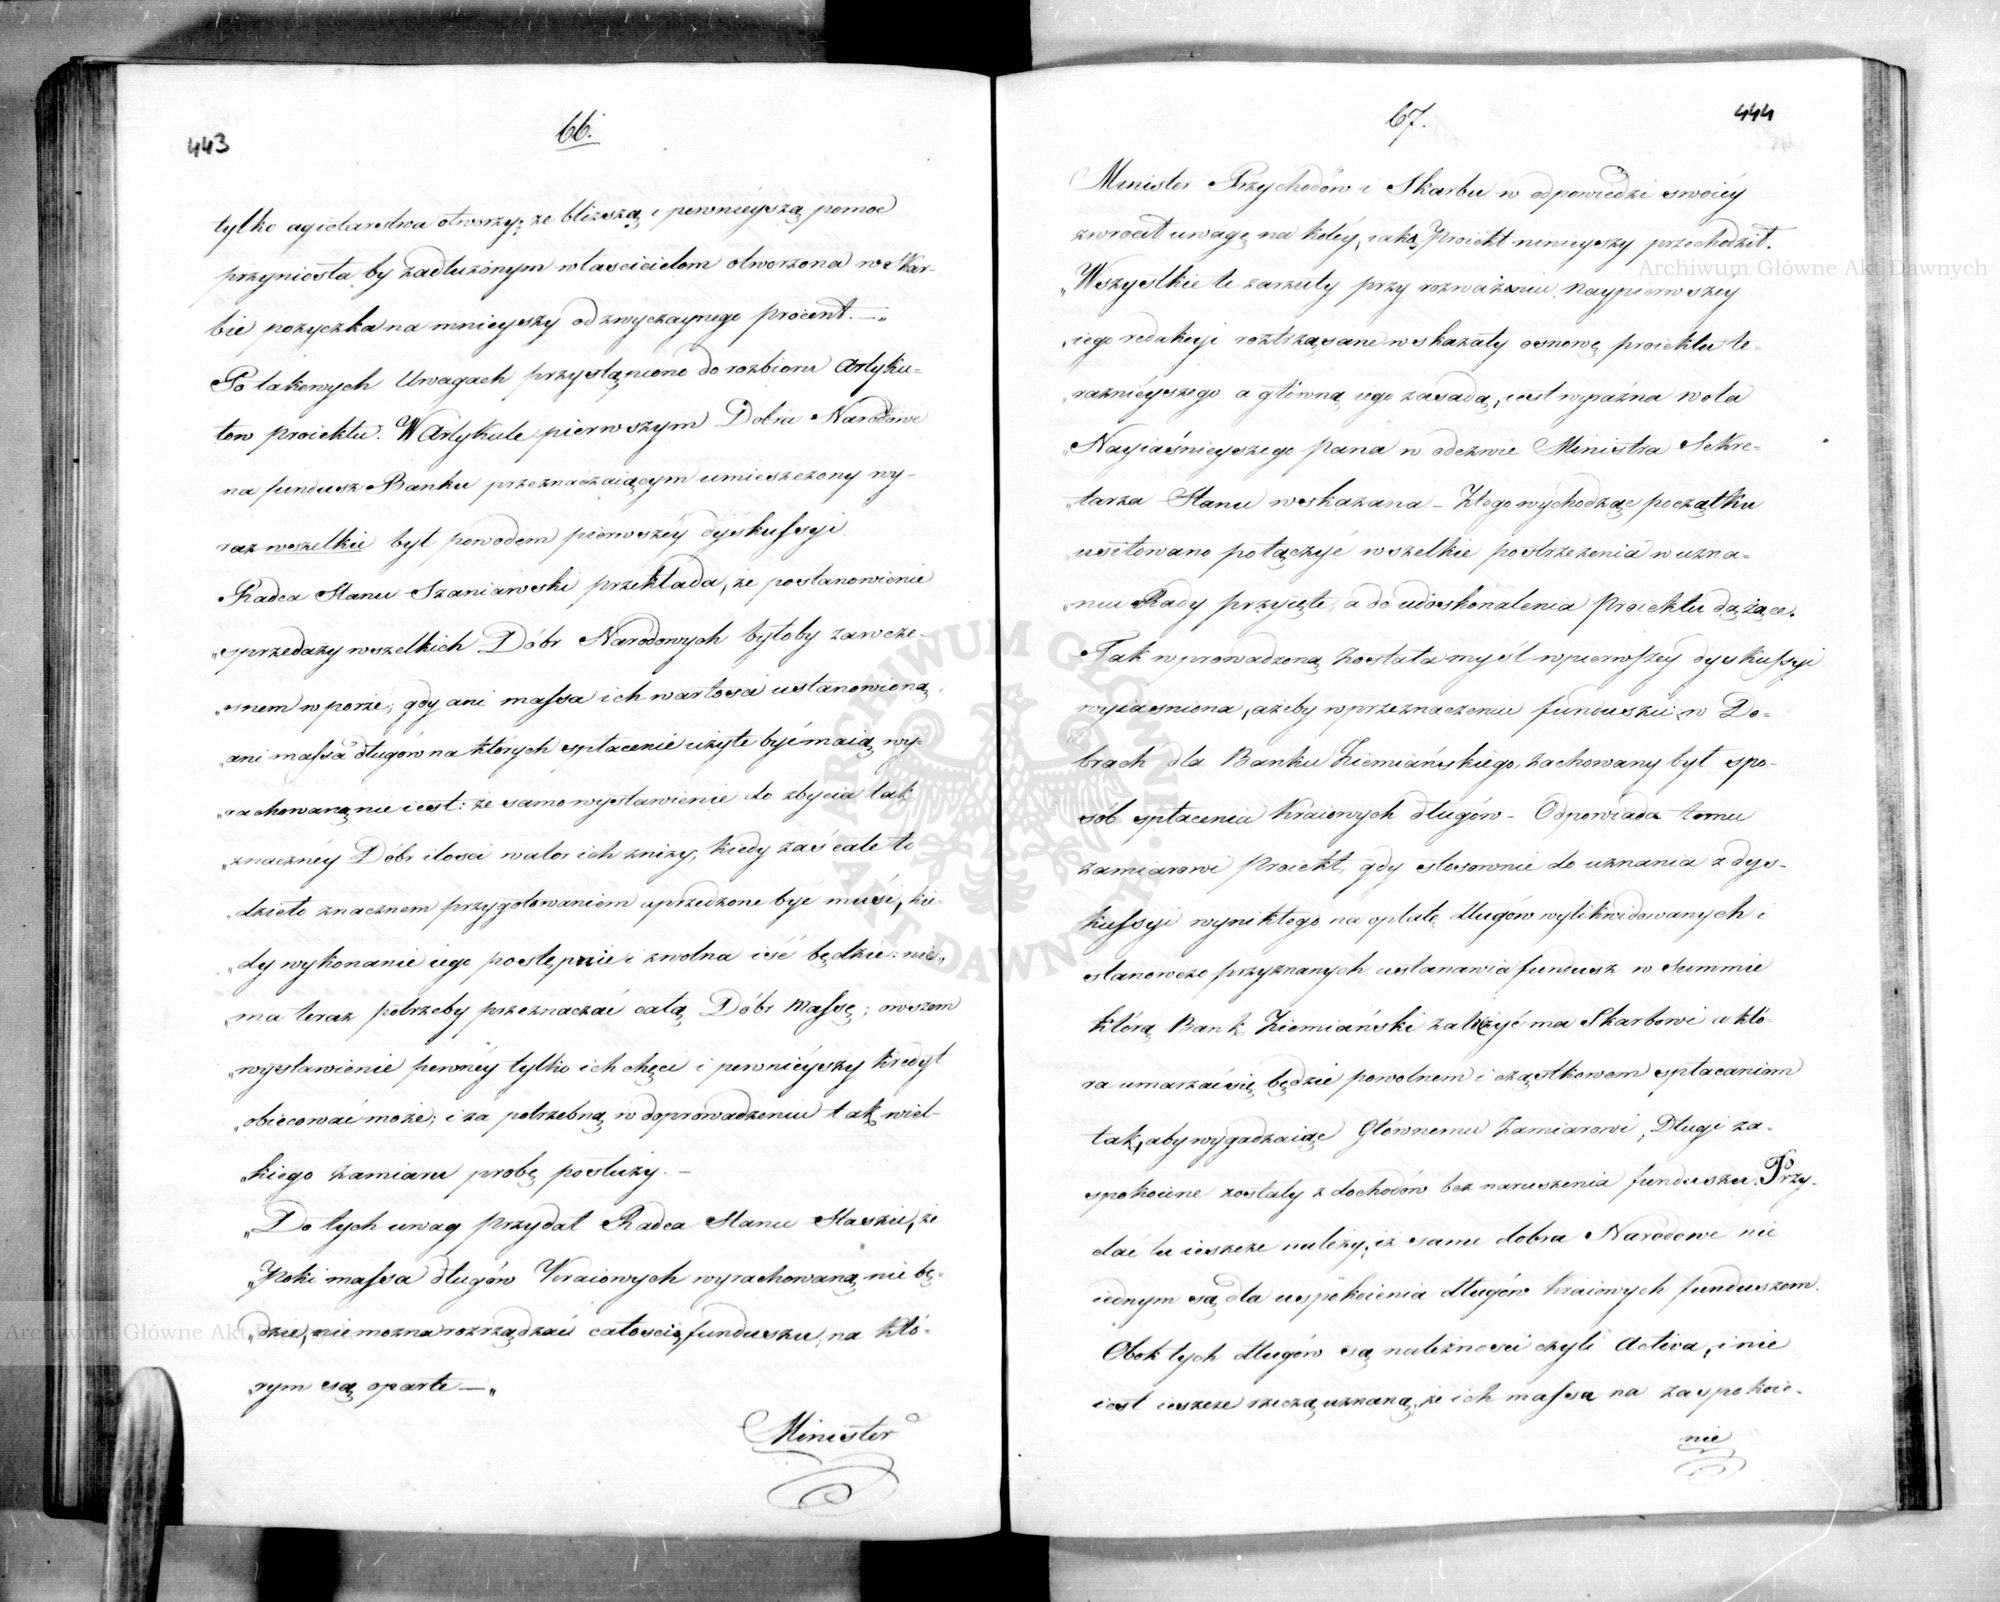 443
66.
tylko agiotarstwa otworzy; że bliższą i pewnieyszą pomoc
przyniosła by zadłużonym właścicielom otworzona w Skar-
bie pożyczka na mnieyszy od zwyczaynego procent. —„
Po takowych Uwagach przystąpiono do rozbioru Artyku-
łow proiektu. W Artykule pierwszym Dobra Narodowe
na fundusz Banku przeznaczaiącym umieszczony wy-
raz wszelkie był powodem pierwszéy dyskussyi.
Radca Stanu Szaniawski przekłada, że postanowienie
„sprzedaży wszelkich Dóbr Narodowych byłoby zawcze-
„snem w porze; gdy ani massa ich wartosci ustanowioną,
„ani massa długów na których spłacenie użyte być maią wy-
„rachowaną nie iest: że samo wystawienie do zbycia tak
„znacznéy Dóbr ilosci walor ich zniży, kiedy zaś całe to
„dzieło znacznem przygotowaniem uprzedzone być musi, kie-
„dy wykonanie iego postępnie i zwolna iść będzie: nie„
„ma teraz potrzeby przeznaczać całą Dóbr Massę; owszem
„wystawienie pewnéy tylko ich chęci i pewnieyszy kredyt
„obiecować może; i za potrzebną w doprowadzeniu tak wiel-
„kiego zamiaru probę posłuży. —
„Do tych uwag przydał Radca Stanu Staszic, że
„Poki massa długów Kraiowych wyrachowaną nie bę-
„dzie, nie można rozrządzać całoscią funduszu, na któ-
„rym są oparte —„
Minister
67.
444
Minister Przychodów i Skarbu w odpowiedzi swoiéy
zwrócił uwagę na koléy, iaką Proiekt ninieyszy przechodził.
„Wszystkie te zarzuty przy rozważeniu naypierwszey
„iego redakcyi roztrząsane wskazały osnowę proiektu te-
„raznieyszego a główną iego zasadą, iest wyraźna wola
„Nayiaśnieyszego Pana w odezwie Ministra Sekre-
„tarza Stanu wskazana — Z tego wychodząc początku
usiłowano połączyć wszelkie postrzeżenia w uzna-
„niu Rady przyięte, a do udoskonalenia Proiektu dążące.
Tak wprowadzoną została myśl w pierwszey dyskussyi
wyiasniona, ażeby w przeznaczeniu funduszu w Do-
brach dla Banku Ziemiańskiego, zachowany był spo-
sób spłacenia Kraiowych długów — Odpowiada temu
zamiarowi Proiekt, gdy stosownie do uznania z dys-
kussyi wynikłego na opłatę długów wylikwidowanych i
stanowczo przyznanych ustanawia fundusz w Summie
którą Bank Ziemiański zaliczyć ma Skarbowi a któ-
ra umarzać się będzie powolnem i cząstkowem spłacaniem
tak, aby wygadzaiąc Głównemu Zamiarowi, Długi za-
spokoione zostały z dochodów bez naruszenia funduszu. Przy-
dać tu ieszcze należy, iż same dobra Narodowe nie
iednym są dla uspokoienia długów kraiowych funduszem.
Obok tych długów są należnosci czyli Activa, i nie
iest ieszcze rzeczą uznaną, że ich massa na zaspokoie-
nie
Archiwum Główne Akt Dawnych
Archiwum Główne Akt Dawnych
ARCHIWUM GŁÓWNE AKT DAWNYCH